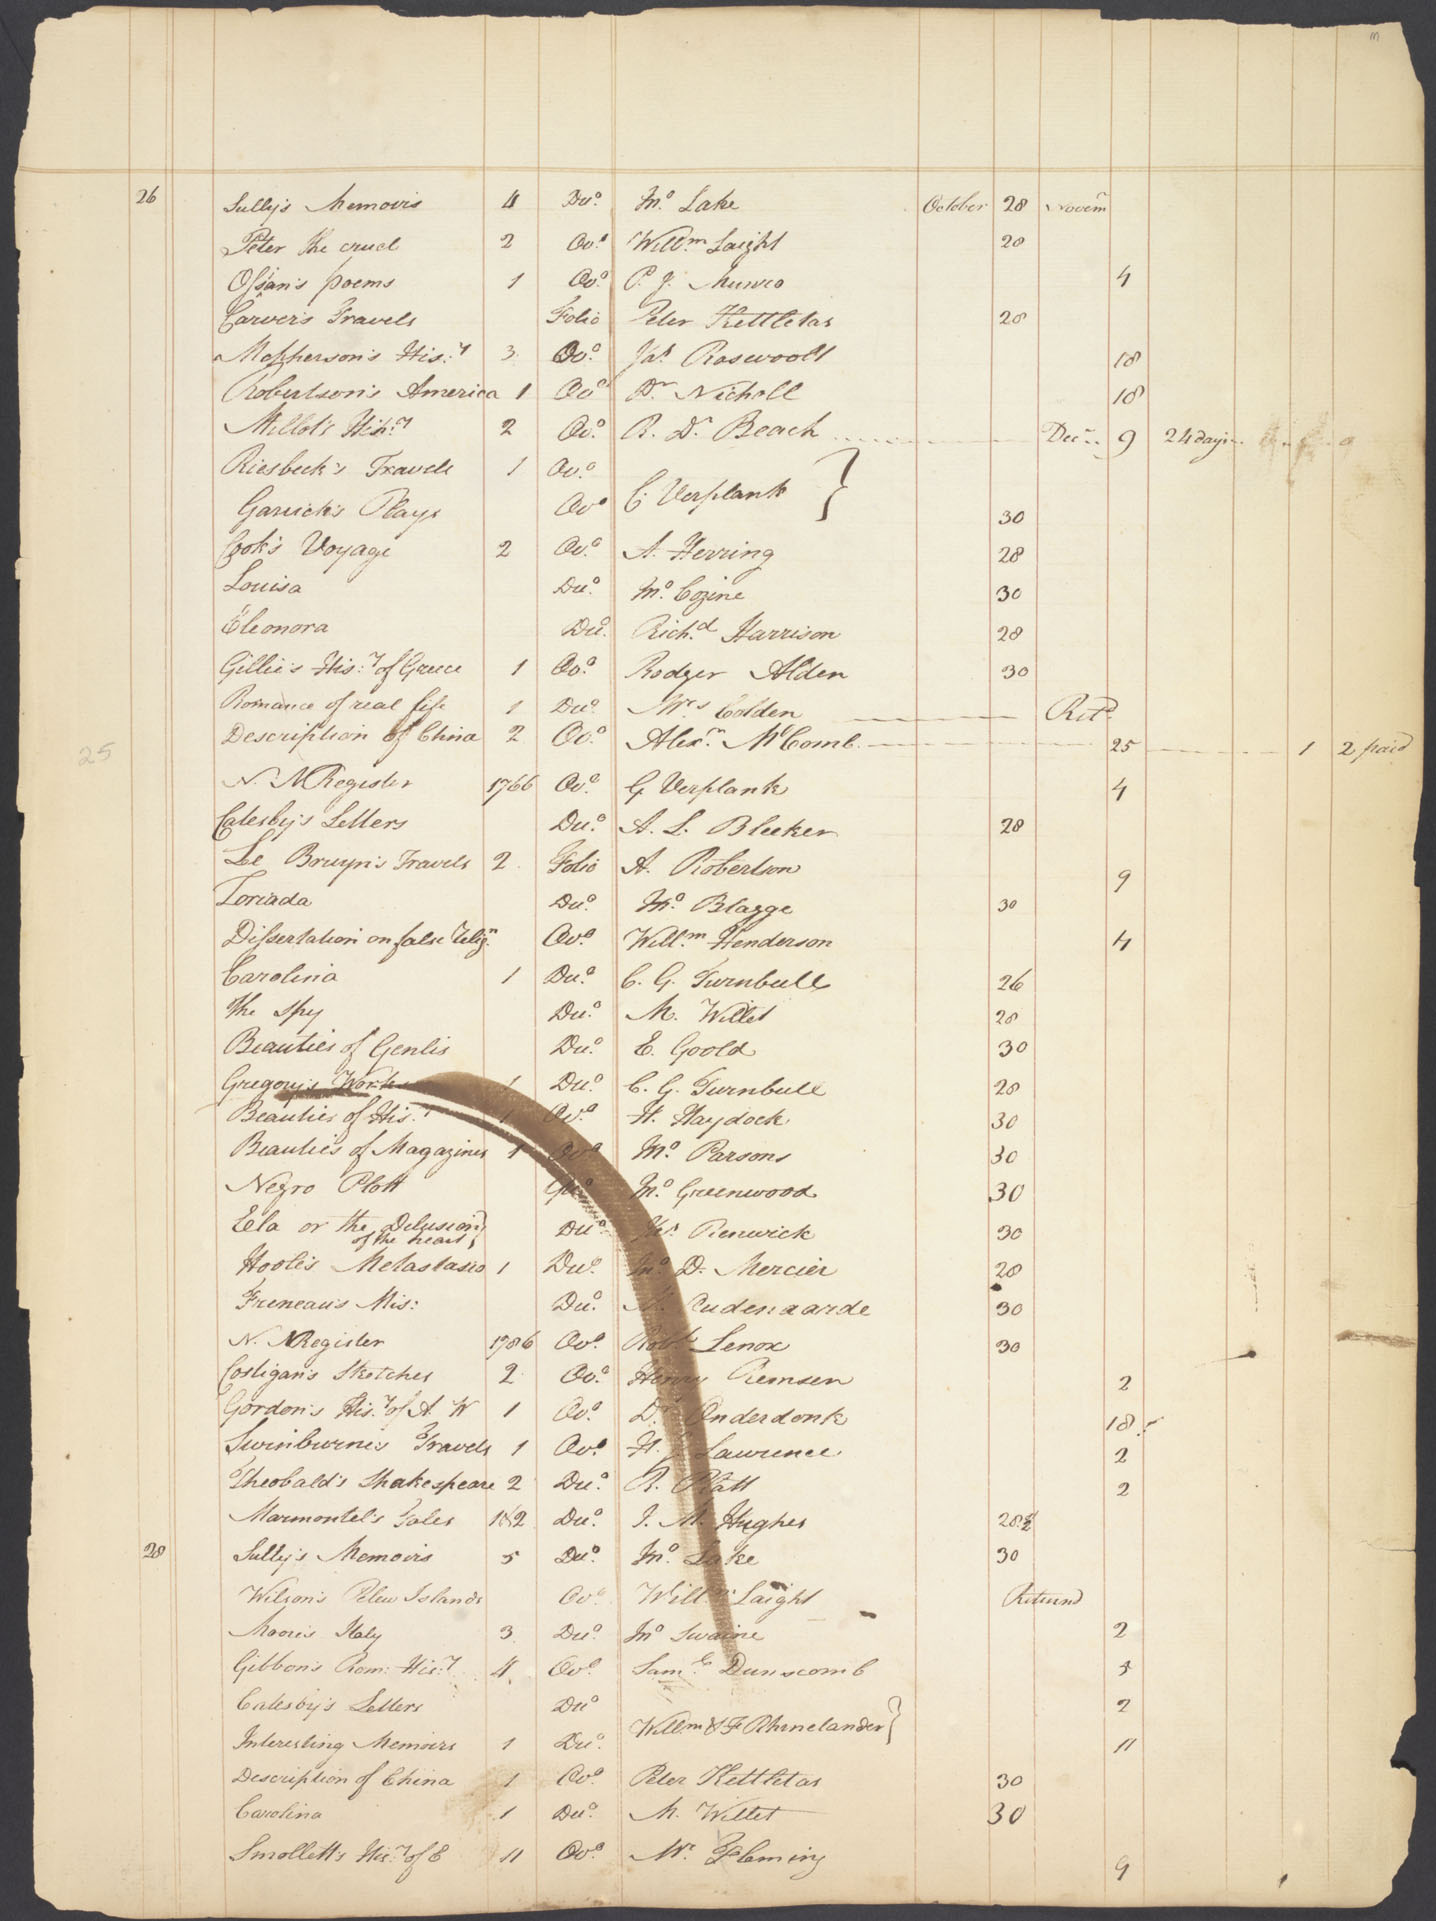 26 Sully's Memoirs 4 Duo. Jno. Lake October 28 Novemr
Peter the cruel 2 Ovo. Willm. Laight 28
Ossian's poems 1 Ovo. P. J. Munro 4
Carver's Travels Folio Peter Kettletas 28
McPherson's His:y 3 Ovo. Jas. Roosevelt 18
Robertson's America 1 Ovo Dr Nicholl 18
Millot's His:y 2 Ovo. R. D. Beach Decr 9 24 days
Riesbeck's Travels 1 Ovo.
Garrick's Plays Ovo C. Verplank } 30
Cook's Voyage 2 Ovo. A. Herring 28
Louisa Duo. Jno. Cozine 30
Eleonora Duo. Richd. Harrison 28
Gillie's His:y of Greece 1 Ovo. Rodger Alden 30
Romance of real life 1 Duo. Mrs Colden Retd.
Description of China 2 Ovo. Alexr. McComb 25 1 2 paid
N. A Register 1766 Ovo. G Verplank 4
Catesby's Letters Duo. A. L. Bleeker 28
Le Bruyn's Travels 2 Folio A. Robertson 9
25
Duo. Jno. Blagge 30
Dissertation on false relign. Ovo. Willm. Henderson 4
Carolina 1 Duo. C. G. Turnbull 26
The Spy Duo. M. Willet 28
Beauties of Genlis Duo. E. Goold 30
Gregory's Works 1 Duo. C. G. Turnbull 28
Beauties of His.y 1 Ovo. H. Haydock 30
Beauties of Magazines 1 Ovo. Jno. Parsons 30
Negro Plott Qto. Jno. Greenwood 30
Ela or the Delusion
of the heart } Duo. Jas. Renwick 30
Hoole's Metastasio 1 Duo. Jno. D. Mercier 28
Freneau's Mis: Duo. Oudenaarde 30
N. A Register 1786 Ovo. Robt. Lenox 30
Costigan's Sketches 2 Ovo. Henry Remsen 2
Gordon's His.y of A. W 1 Ovo. Dr. Onderdonk 18
Swinburne's Travels 1 Ovo. H. Lawrence 2
Theobald's Shakespeare 2 Duo. R. Platt 2
Marmontel's Tales 1&2 Duo. J. M. Hughes 28
28 Sully's Memoirs 5 Duo. Jno. Lake 30
Wilson's Pelew Islands Ovo Willm. Laight Returnd
Moore's Italy 3 Duo. Jno Swaine 2
Gibbon's Rom: His:y 4 Ovo. Saml. Dunscomb 5
Catesby's Letters Duo 2
Interesting Memoirs 1 Duo. Willm & F Rhinelander } 11
Description of China 1 Ovo. Peter Kettletas 30
Carolina 1 Duo. M. Willet 30
Smollett's His:y of E 11 Ovo. Mr. Fleming 9